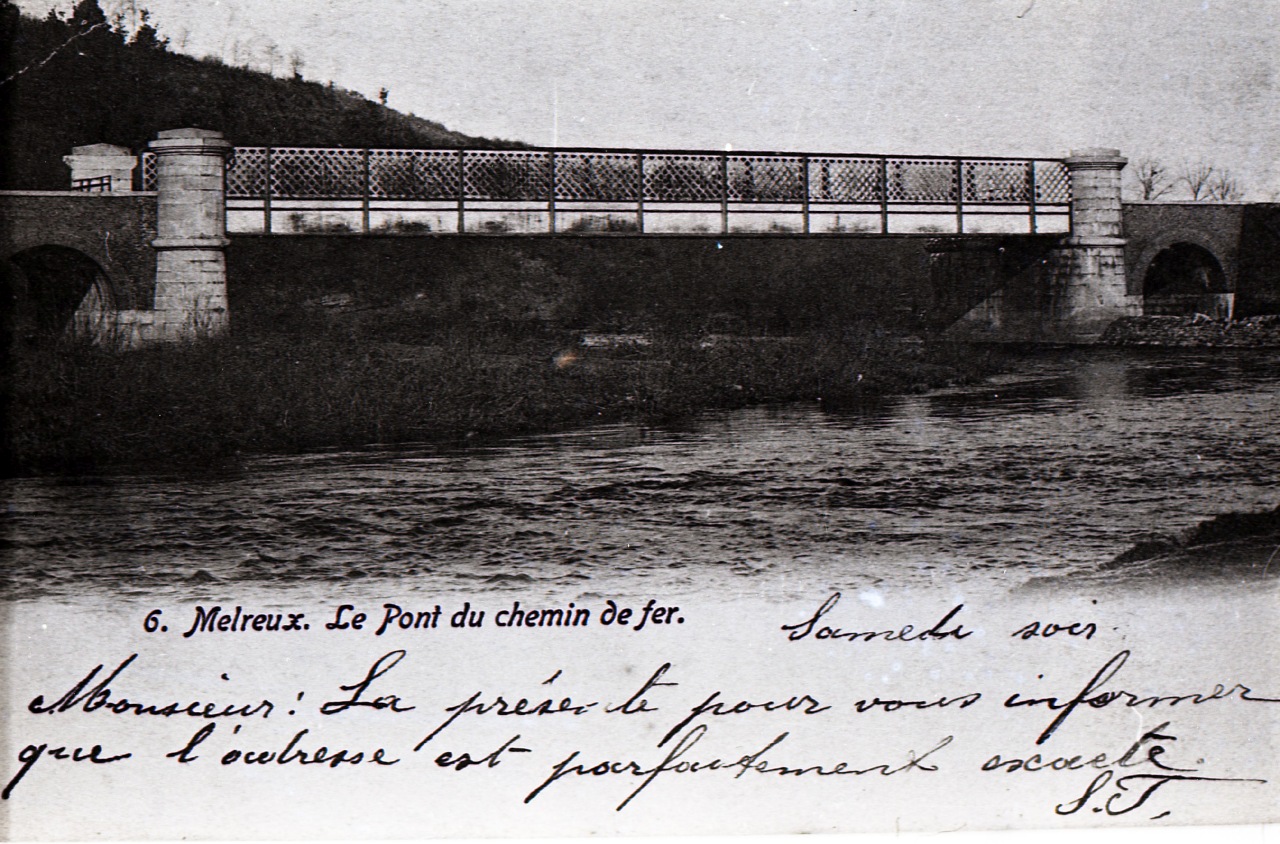 6. Melreux. Le Pont du chemin de fer.
Samedi soir.
Monsieur: La présente pour vous informer
que l'adresse est parfaitement exacte.
S.T.